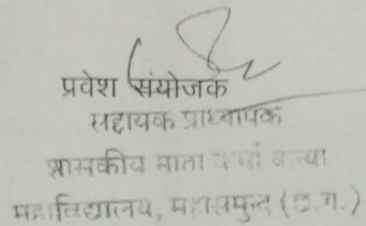 प्रवेश संयोजक
सहायक प्राध्यापक
शासकीय माता कर्मा कन्या
महाविद्यालय, महासमुन्द (छ.ग.)